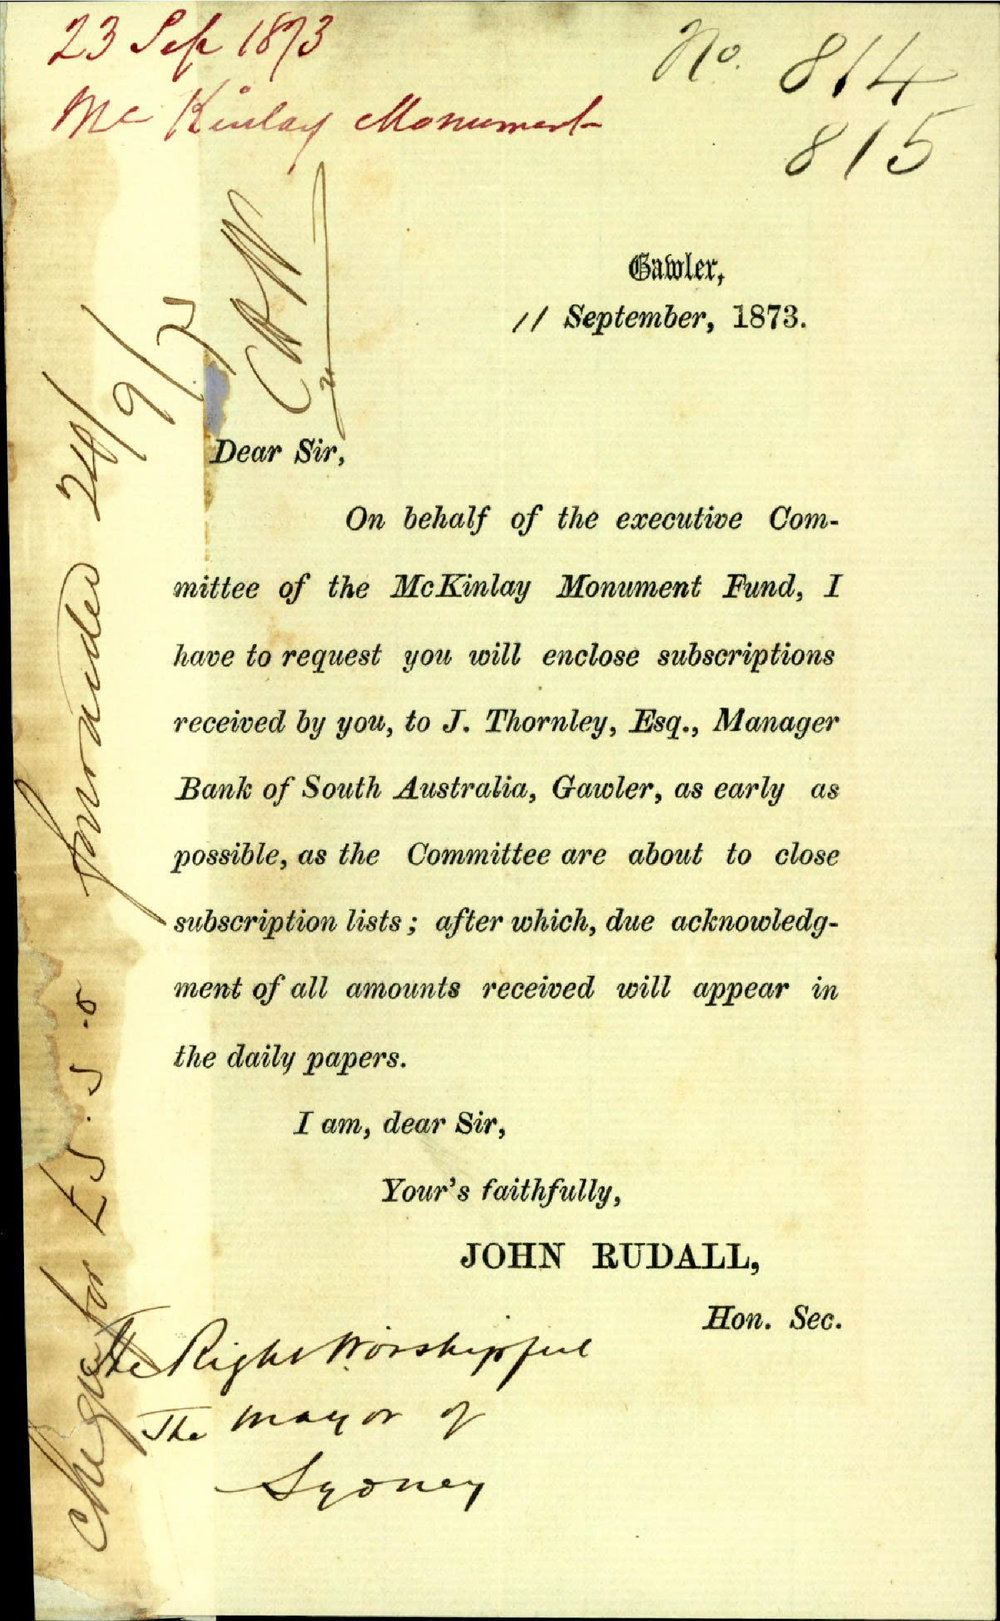 23 Sep 1873
McKinlay Monument
No. 814
815
Gawler,
11 September, 1873.
Dear Sir,
On behalf of the executive Com-
mittee of the McKinlay Monument Fund, I
have to request you will enclose subscriptions
received by you, to J. Thornley, Esq., Manager
Bank of South Australia, Gawler, as early as
possible, as the Committee are about to close
subscription lists; after which, due acknowledg-
ment of all amounts received will appear in
the daily papers.
I am, dear Sir,
Your's faithfully,
JOHN RUDALL,
Hon. Sec.
The Right Worshipful
The Mayor of
Sydney
Cheque for £5.5.0 forwarded 24/9/73